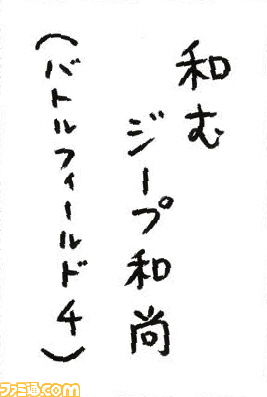 和む
ジープ和尚
(バトルフィールド4)
ファミ通.com